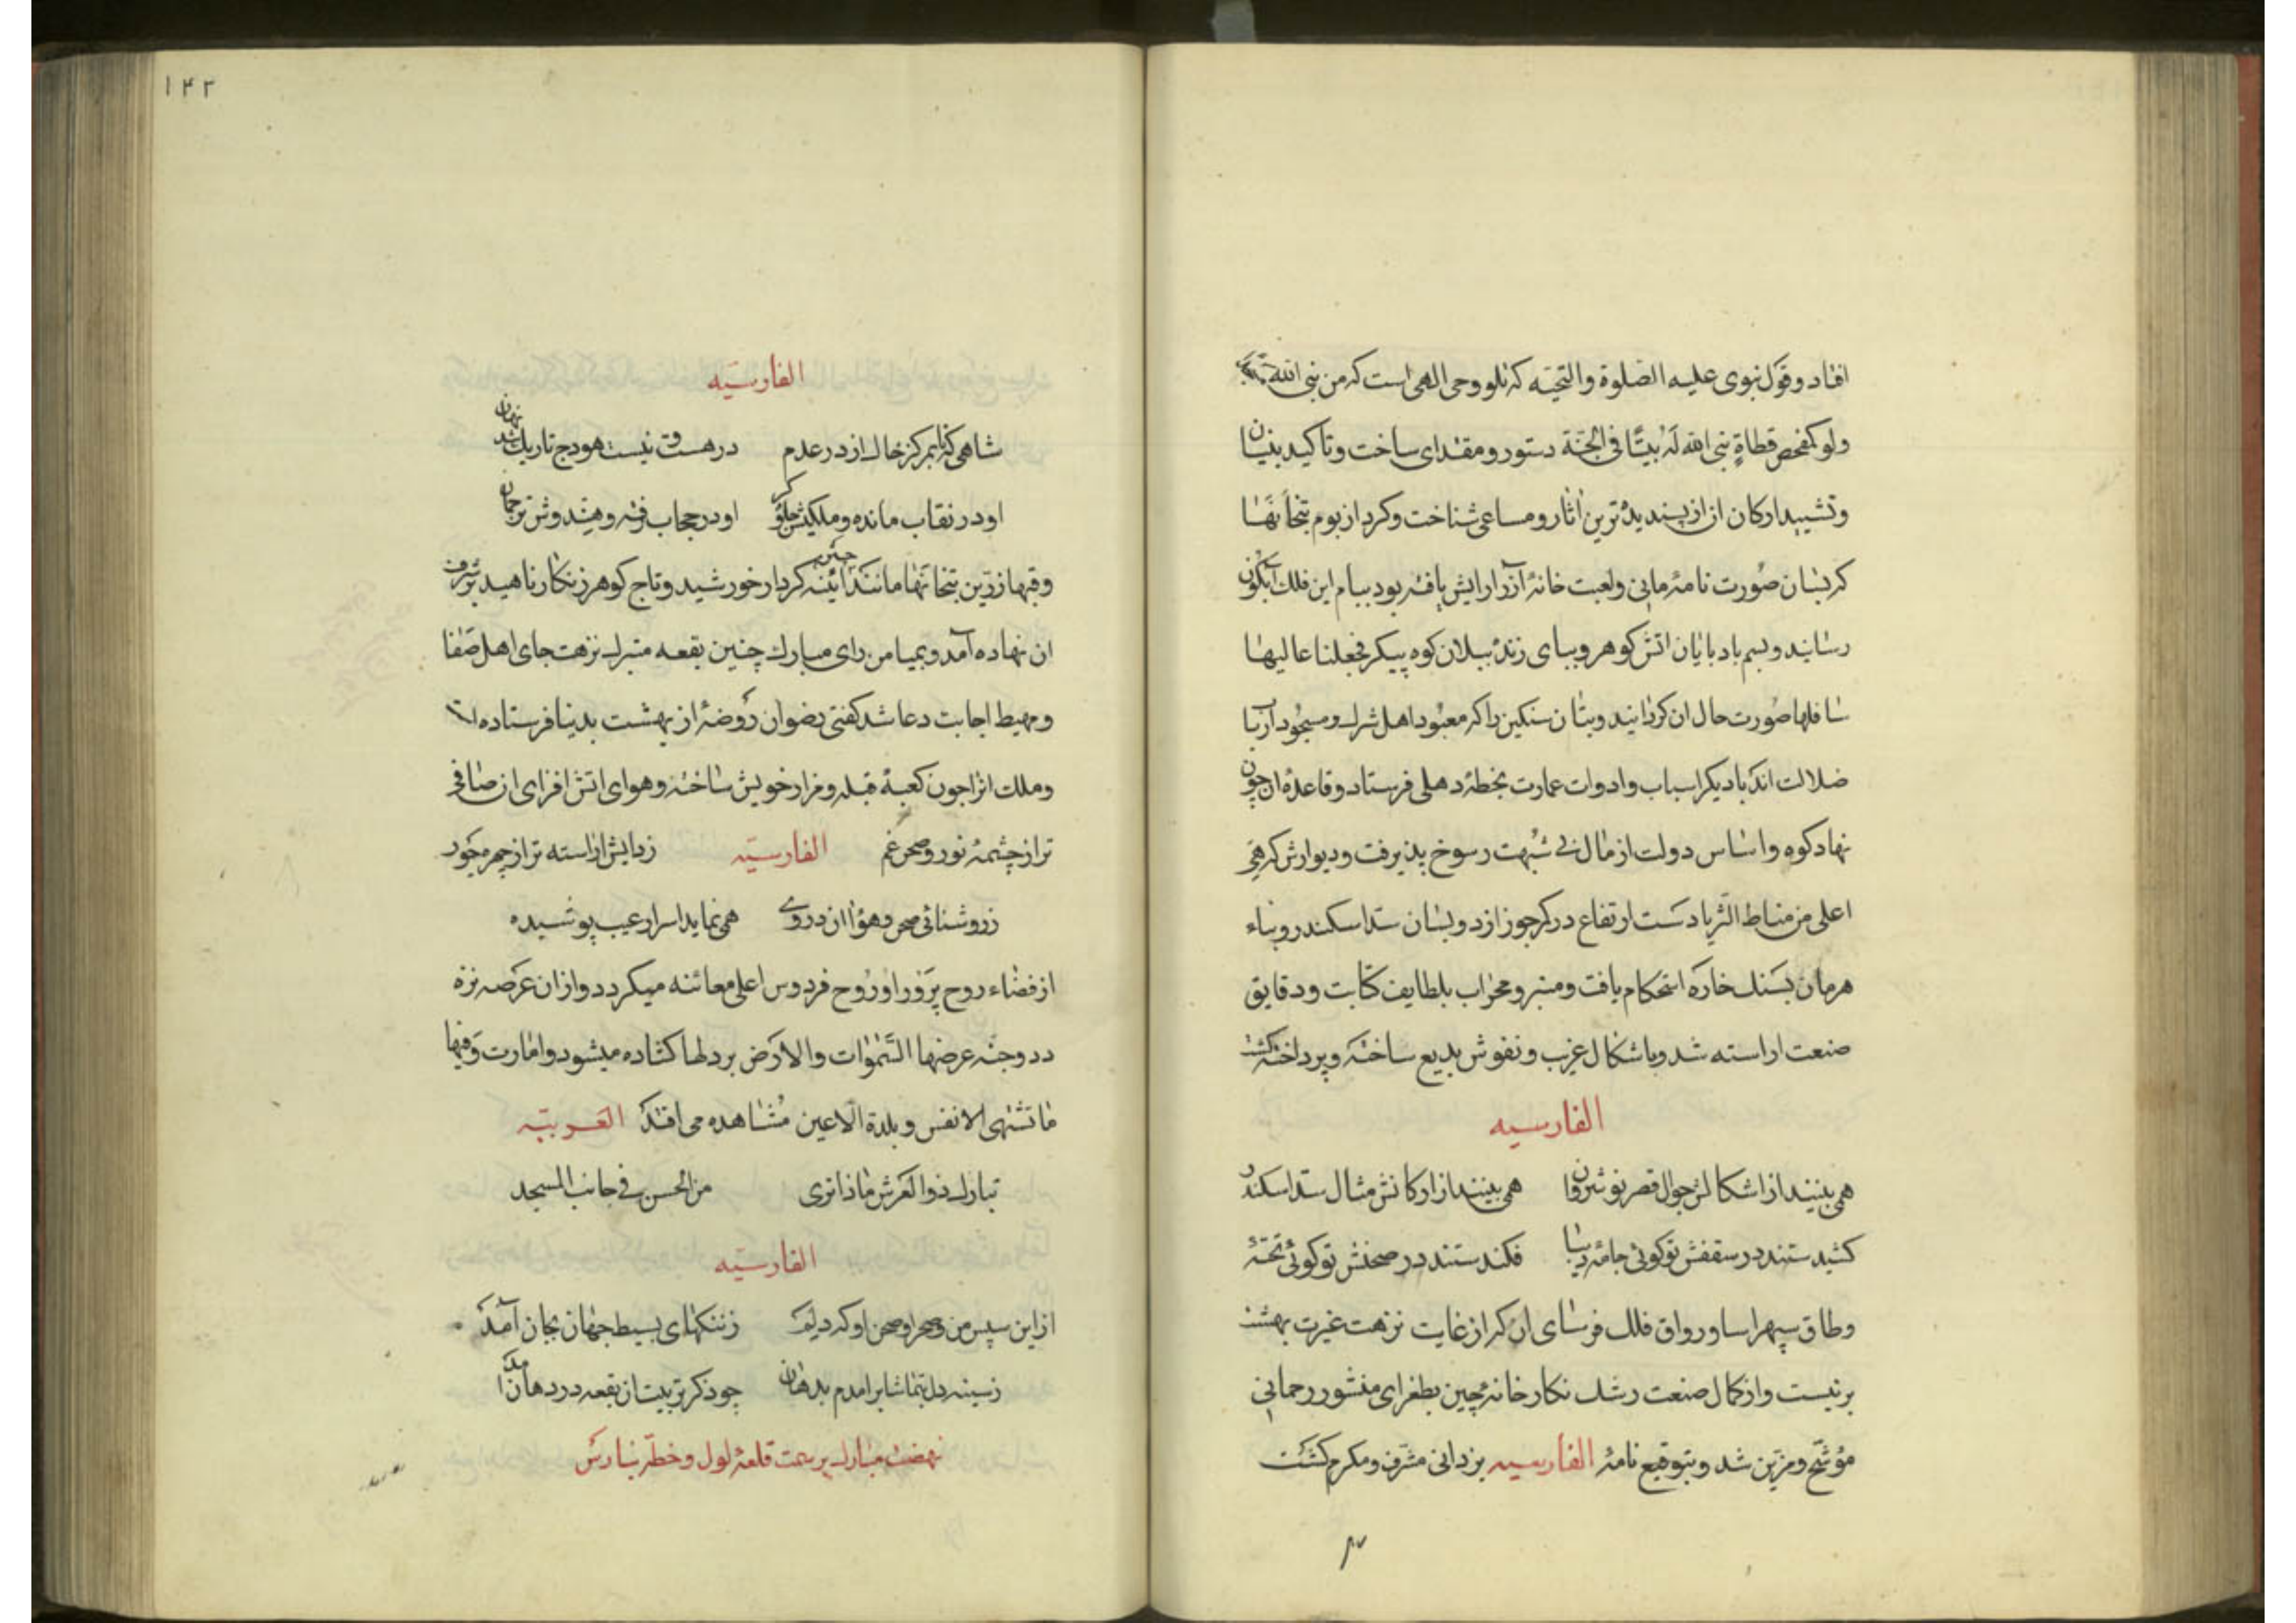 افتاد و قول نبوی علیه الصلوة والتحیه که تلو وحی الهی است که من بنی لله
ولو کمفحص قطاةٍ بنی الله لَهُ بیتًا فی الجنّة دستور و مقتدای ساخت و تاکید بنیان
و تشیید ارکان ان از پسندیدهٔ ترین اثار و مساعی شناخت و کرد از بوم بتخانها
که بسان صورت نامهٔ مانی و لعبت خانهٔ آزر ارایش یافته بود ببام این فلک آبگون
رسانید و بسم باد پایان اتش کوهر و بپای زنده پیلان کوه پیکر فجعلنا عالیها
سافلها صورت حال ان کردانیند و بتان سنکین را که معبود اهل شرک و مسجود ارباب
ضلالت اند با دیکر اسباب و ادوات عمارت بخطهٔ دهلی فرستاد و قاعدهٔ ان چون
نهاد کوه و اساس دولت از مال بی شبهت رسوخ پذیرفت و دیوارش که هی
اعلی من مناط الثریا دست ارتفاع در کمر جوزا زد و بسان سدّ اسکندر و بناء
هرمان بسنک خاره استحکام یافت و منبر و محراب بلطایف کتابت و دقایق
صنعت اراسته شد و باشکال غریب و نقوش بدیع ساخته و پرداخته کشت
الفارسیه
همی بینند از اشکالش جوال قصر نوشروان همی بینند از ارکانش مثال سدّ اسکندر
کشیدستند در سقفش تو کوئی جامهٔ دیبا فکندستند در صحنش تو کوئی تختهٔ
و طاق سپهر اسا و رواق فلک فرسای ان که از غایت نزهت غیرت بهشت
برنیست و از کمال صنعت رشک نکارخانهٔ چین بطغرای منشور رحمانی
مؤشّح و مزین شد و بتوقیع نامهٔ الفارسیه یزدانی مشرّف و مکرم کشت
۱۴۳
الفارسیّه
شاهی که تا بمرکز خاک از در عدم در هست و نیست هودج تاریک شد نهان
او در نقاب مانده و ملکیش جلوه کر او در حجاب رفته و هیبتش ترجمان
و قبهٔا زرّین بتخانها مانند ائینه کردار خورشید و تاج کوهر نکار ناهید بر شرف
ان نهاده آمد و بمیامن رای مبارک چنین بقعه متبرک نزهت جای اهل صفا
و مهبط اجابت دعا شد کفتی رضوان روضهٔ از بهشت بدنیا فرستاده است
و ملک انرا چون کعبهٔ قبله و مزار خویش ساخته و هوای اتش افزای ان صافی
تر از چشمهٔ نور و صحن غم الفارسیّه زدایش اراسته تر از چهر حور
ز روشنائی صحن و هوا ان در وی همی نماید اسرار غیب پوشیده
از فضاء روح پرور او روح فردوس اعلی معائنه میکردد و از ان عرصه نزه
در وجنّه عرضها السّموات والارض بر دلها کشاده میشود و امارت و فیها
ما تشتهی الانفس و یلذة الاعین مشاهده می افتد العربیّه
تبارک ذوالعرش ماذا نری من الحسن فی جانب المسجد
الفارسیّه
از این سپس من و صحرا و صحن او که دلم ز تنکهای بسیط جهان بجان آمد
ز سینه دل بتماشا برامدم بدهان چو ذکر تربیت ان بقعه در دهان آمد
نهضت مبارک بر سمت قلعهٔ لول و خطهٔ بنارس